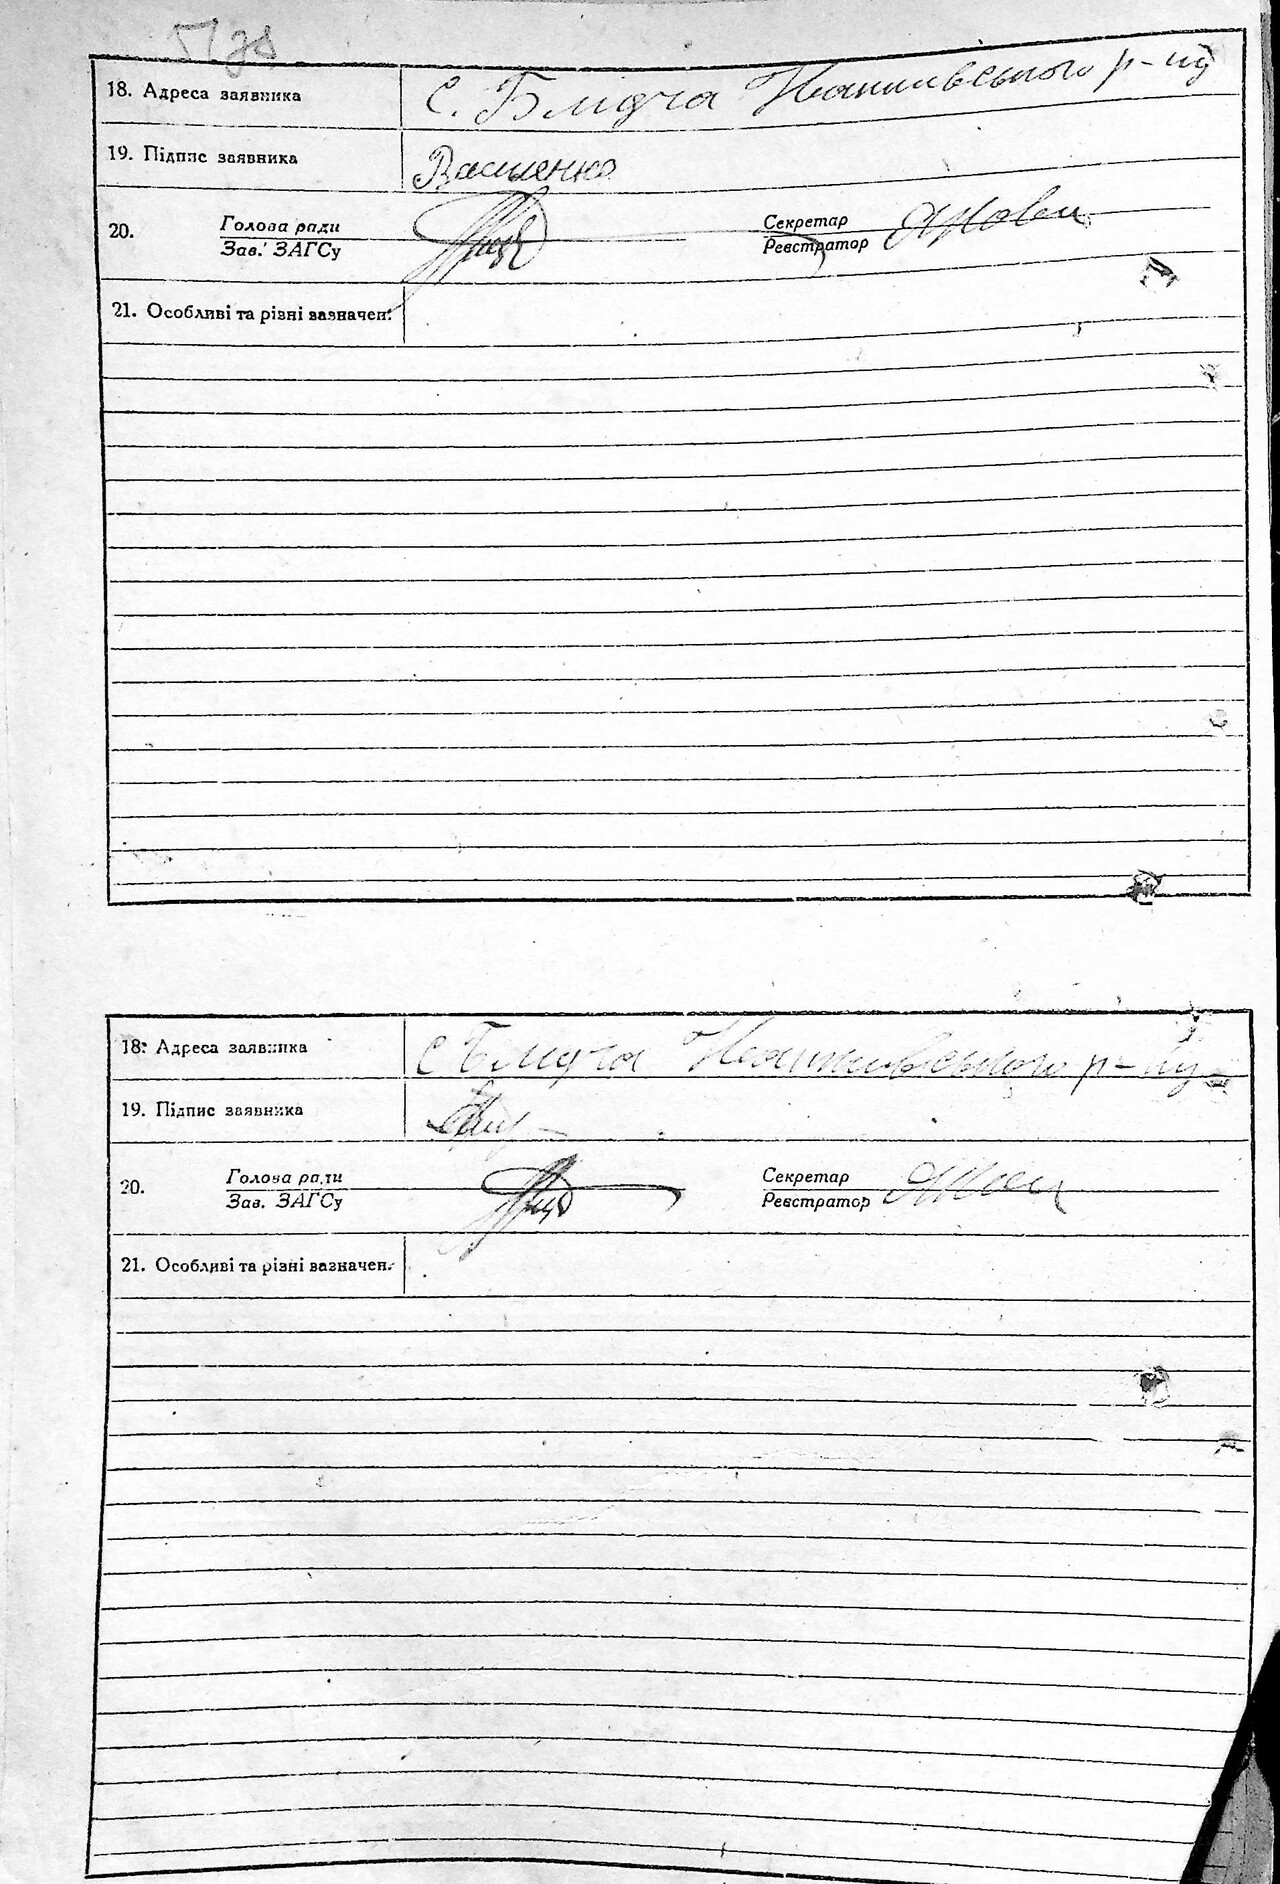 51 зв
18. Адреса заявника с. Блидча Іванківського р-ну
19. Підпис заявника Василенко
20. Голова ради Секретар
Зав. ЗАГСу Реєстратор
21. Особливі та різні зазначен.
18. Адреса заявника с Блидча Іванківського р-ну
19. Підпис заявника
20. Голова ради Секретар
Зав. ЗАГСу Реєстратор
21. Особливі та різні зазначен.